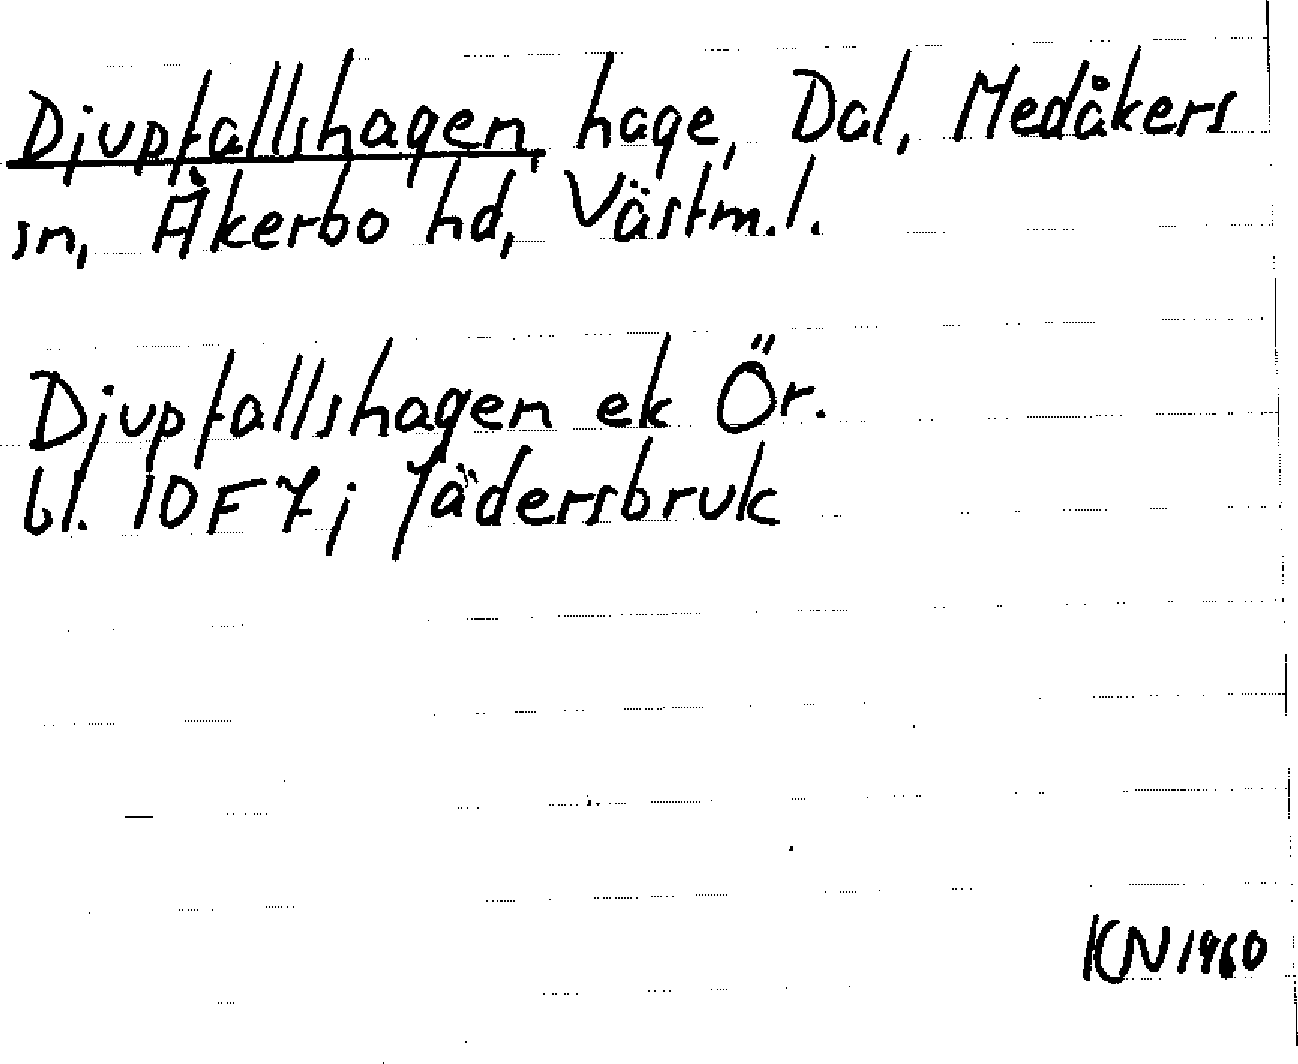 Djupfallshagen, hage, Dal, Medåkers
sn, Åkerbo hd, Västm.l.
Djupfallshagen ek Ör.
bl. 10F7j Jädersbruk
KN 1960